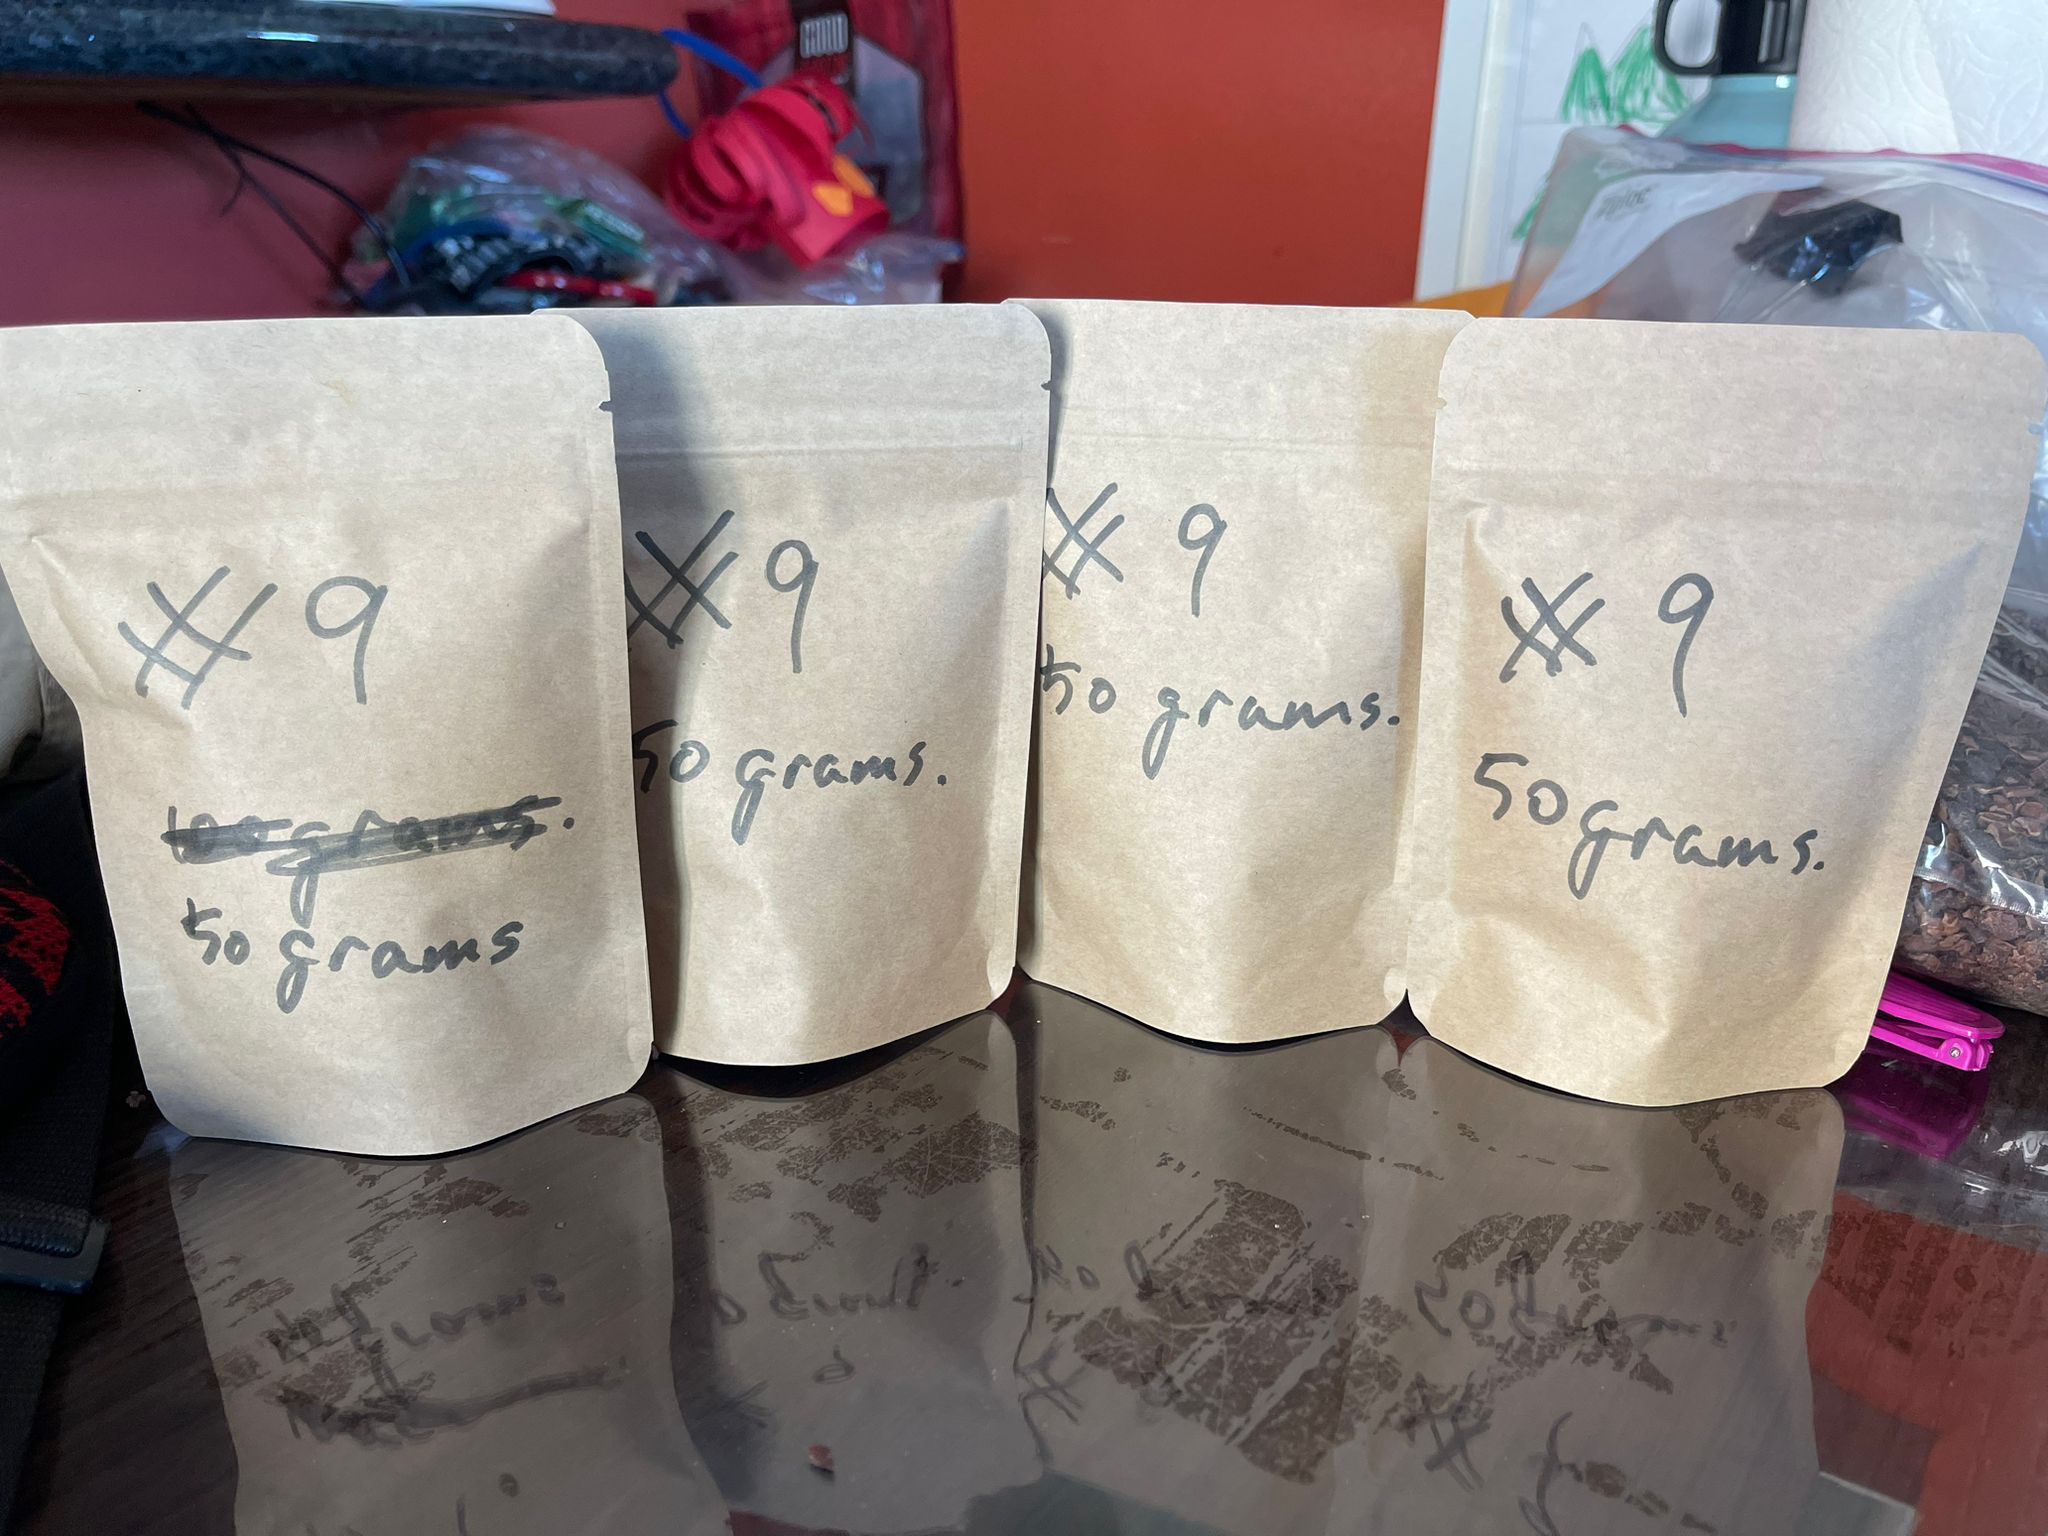 #9
100 grams.
50 grams
#9
50 grams.
#9
50 grams.
#9
50 grams.
ziploc